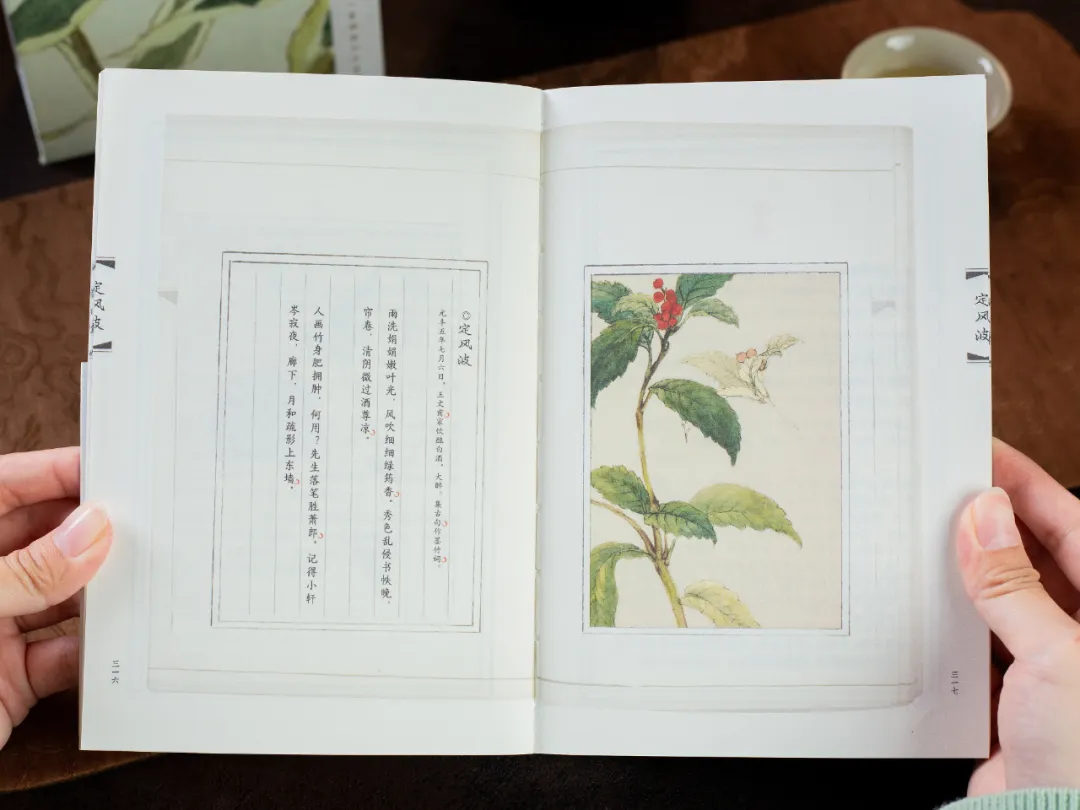 ◎定风波
元丰五年七月六日，王文甫家饮酿白酒，大醉。集古句作墨竹词。
雨洗娟娟嫩叶光。风吹细细绿筠香。秀色乱侵书帙晚。
帘卷。清阴微过酒尊凉。
人画竹身肥拥肿。何用？先生落笔胜萧郎。记得小轩
岑寂夜。廊下。月和疏形上东墙。
定风波
三一六
定风波
三一七